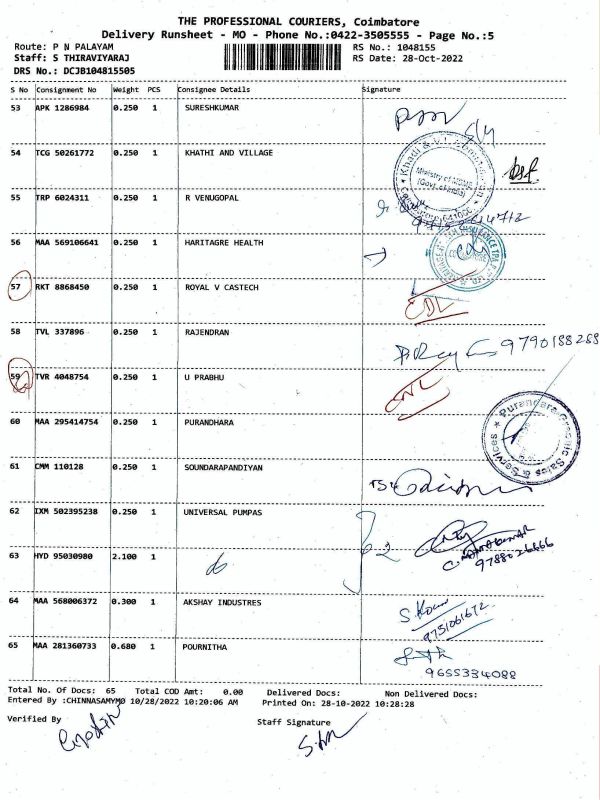 THE PROFESSIONAL COURIERS, Coimbatore
Delivery Runsheet - MO - Phone No.:0422-3505555 - Page No.:5
Route: P N PALAYAM RS No.: 1048155
Staff: S THIRAVIYARAJ RS Date: 28-Oct-2022
DRS No.: DCJB104815505
S No Consignment No Weight PCS Consignee Details Signature
53 APK 1286984 0.250 1 SURESHKUMAR
54 TCG 50261772 0.250 1 KHATHI AND VILLAGE
Ministry of MSME
(Govt. of India)
55 TRP 6024311 0.250 1 R VENUGOPAL
56 MAA 569106641 0.250 1 HARITAGRE HEALTH
57 RKT 8868450 0.250 1 ROYAL V CASTECH
CDL
58 TVL 337896 0.250 1 RAJENDRAN
9790188268
59 TVR 4048754 0.250 1 U PRABHU
CNL
60 MAA 295414754 0.250 1 PURANDHARA
Purandara Graphic Sales & Services
61 CMM 110128 0.250 1 SOUNDARAPANDIYAN
62 IXM 502395238 0.250 1 UNIVERSAL PUMPAS
63 HYD 95030980 2.100 1
9788026666
64 MAA 568006372 0.300 1 AKSHAY INDUSTRES
9751061672
65 MAA 281360733 0.680 1 POURNITHA
9655334088
Total No. Of Docs: 65 Total COD Amt: 0.00 Delivered Docs: Non Delivered Docs:
Entered By :CHINNASAMYMO 10/28/2022 10:20:06 AM Printed On: 28-10-2022 10:28:28
Verified By Staff Signature